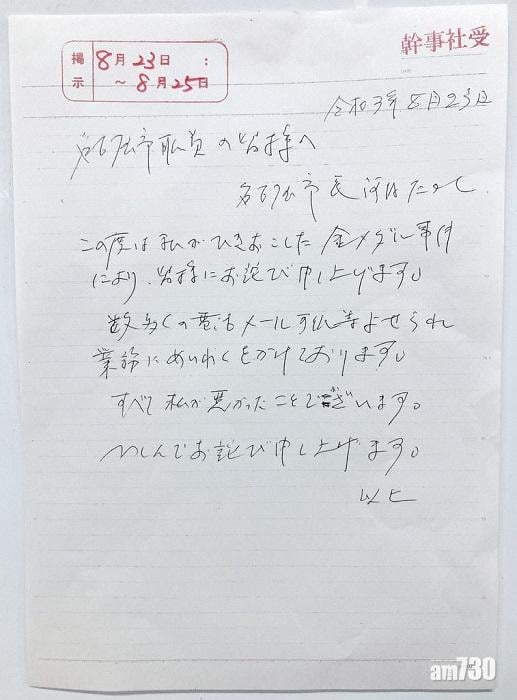 幹事社受
掲示 8月23日 :
～8月25日
令和3年8月23日
名古屋市職員の皆様へ
名古屋市長 河村たかし
この度は私がひきおこした金メダル事件
により、皆様にお詫び申し上げます。
数多くの電話メール手紙等よせられ
業務にめいわくをかけております。
すべて私が悪かったことでございます。
つつしんでお詫び申し上げます。
以上
am730